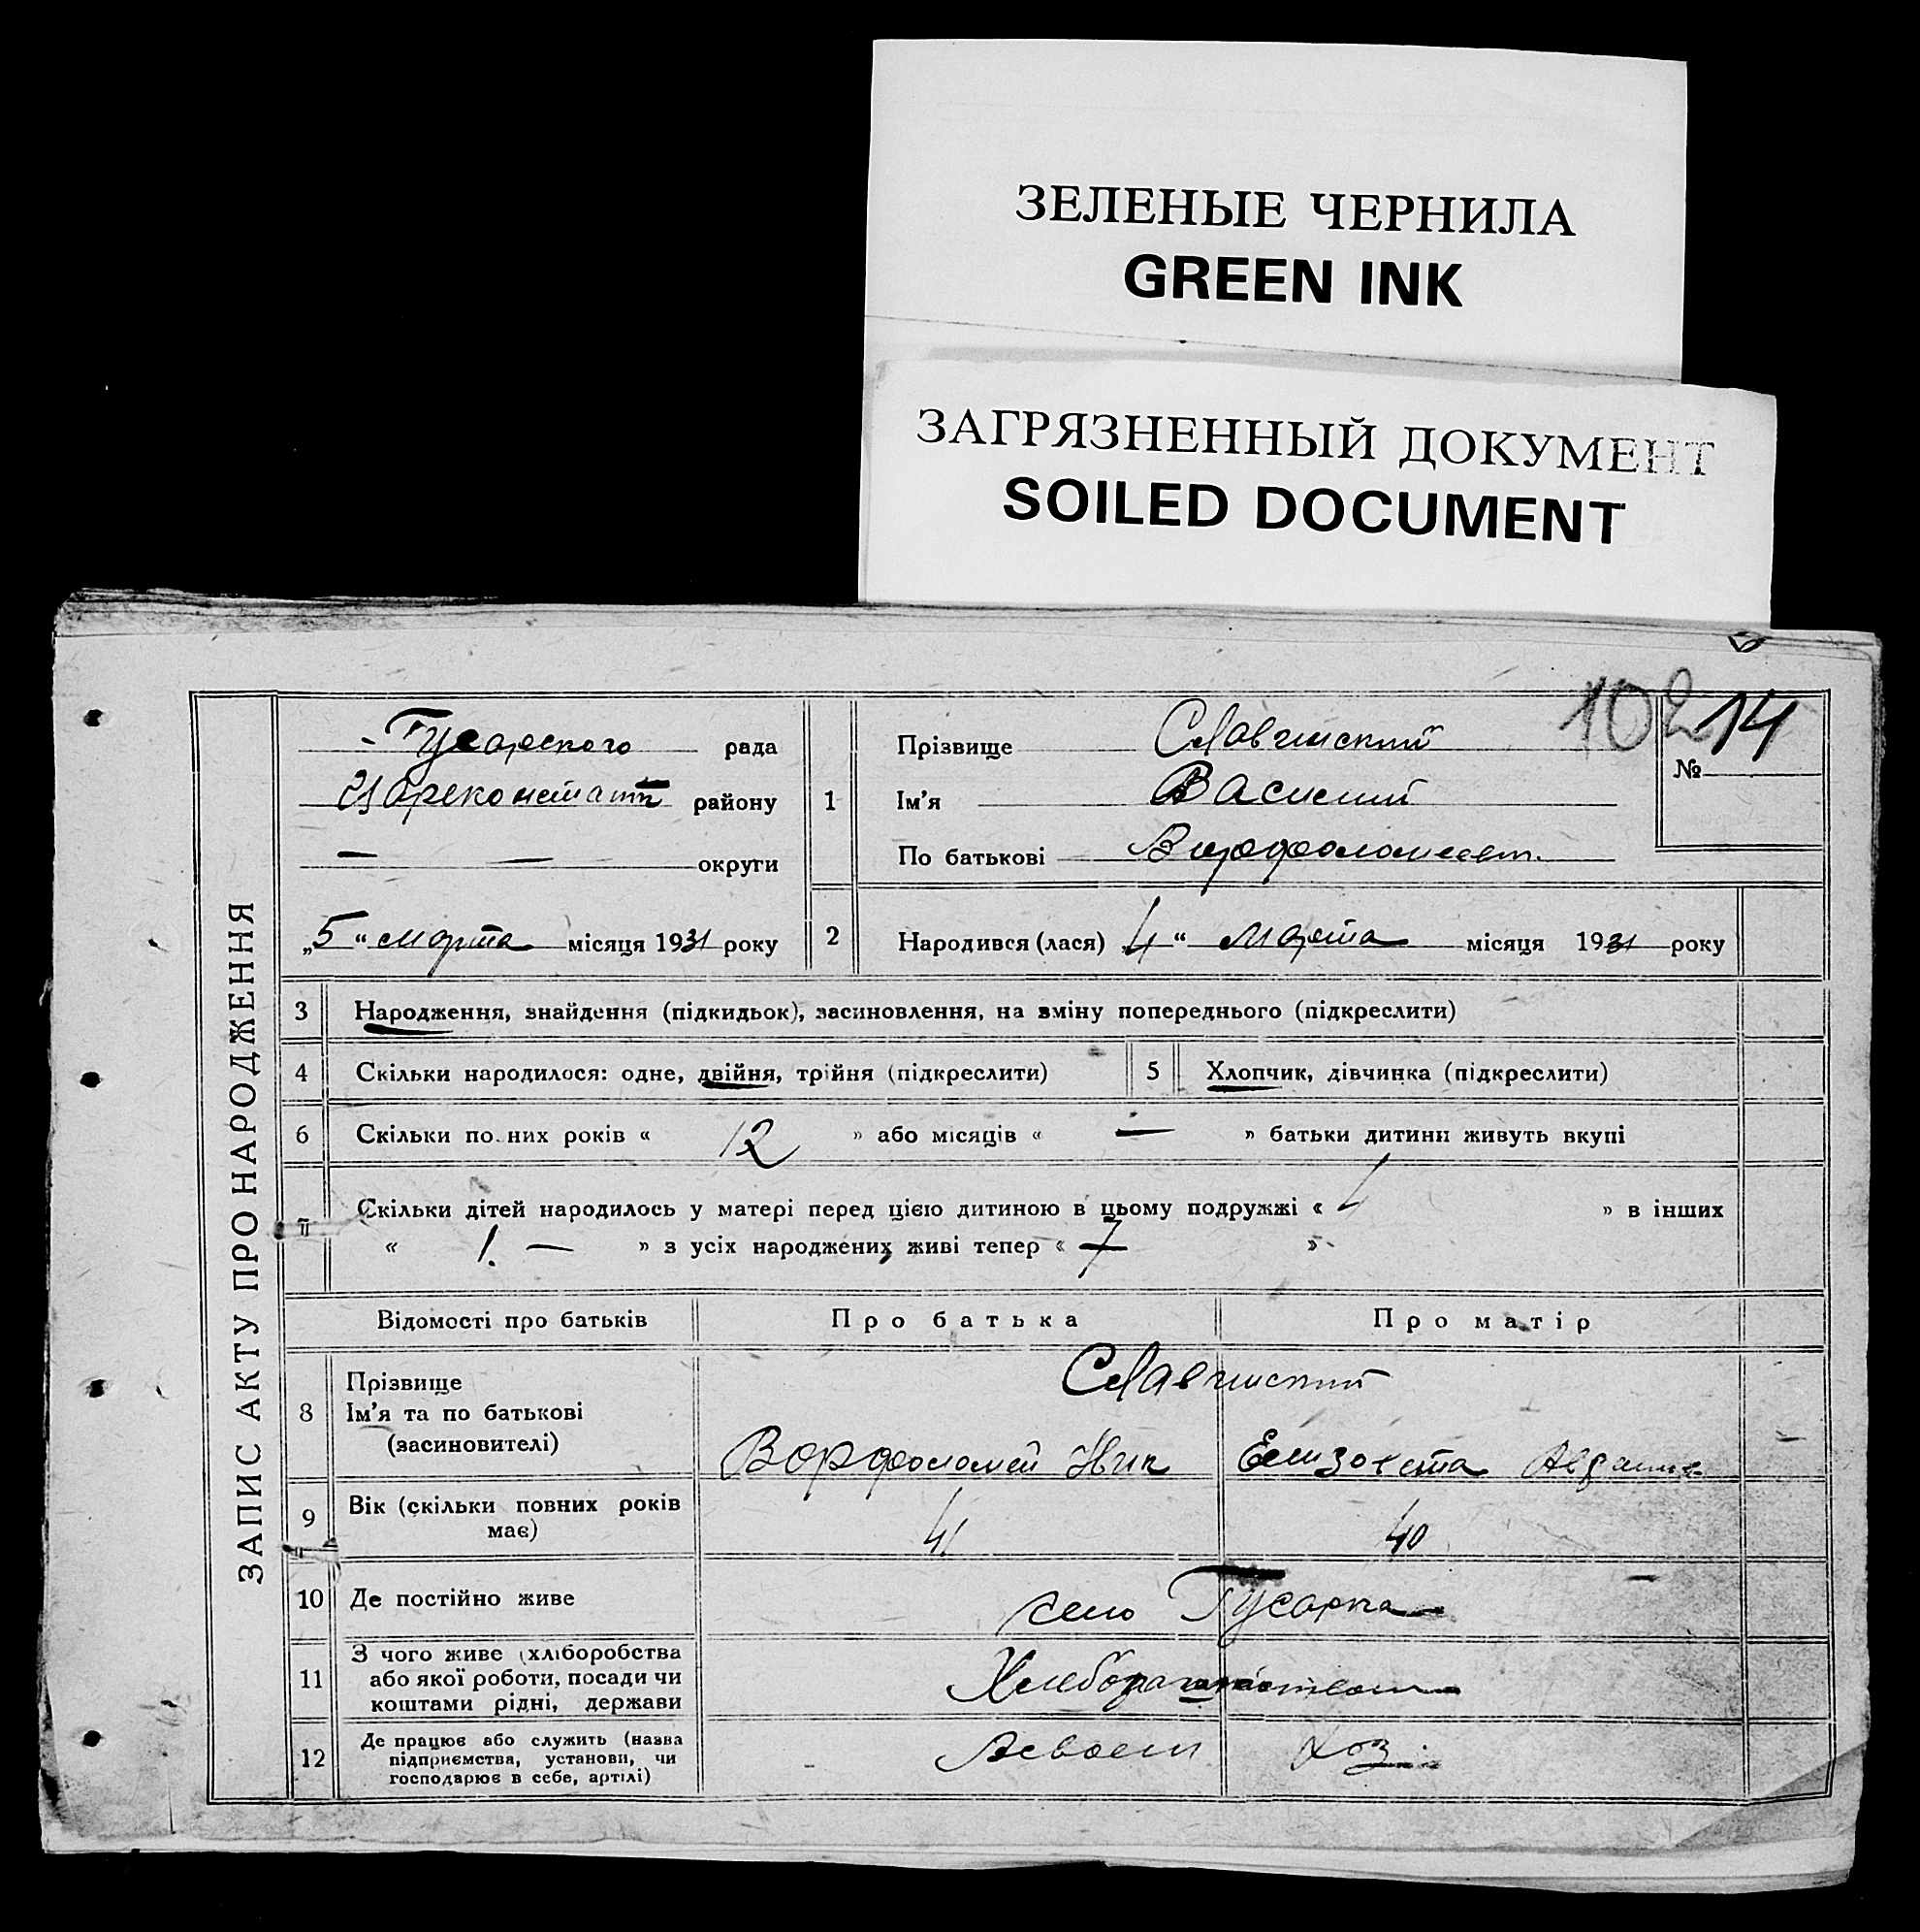 ЗЕЛЕНЫЕ ЧЕРНИЛА
GREEN INK
ЗАГРЯЗНЕННЫЙ ДОКУМЕНТ
SOILED DOCUMENT
ЗАПИС АКТУ ПРО НАРОДЖЕННЯ
102 14
№
Гусарского рада
Цареконстант району
— — округи
„5“ марта місяця 1931 року
1
Прізвище Славинский
Ім'я Василий
По батькові
2 Народився (лася) 4 “ Марта місяця 1931 року
3 Народження, знайдення (підкидьок), засиновлення, на зміну попереднього (підкреслити)
4 Скільки народилося: одне, двійня, трійня (підкреслити)
5 Хлопчик, дівчинка (підкреслити)
6 Скільки повних років « 12 » або місяців « — » батьки дитини живуть вкупі
Скільки дітей народилось у матері перед цією дитиною в цьому подружжі « » в інших
« 1. — » з усіх народжених живі тепер « 7 »
Відомості про батьків Про батька Про матір
8 Прізвище
Ім'я та по батькові
(засиновителі)
Славинский
Вордфоломей Ник Елизовета
9 Вік (скільки повних років має) 41 40
10 Де постійно живе село Гусарка
11 З чого живе (хліборобства
або якої роботи, посади чи
коштами рідні, держави
12 Де працює або служить (назва
підприємства, установи, чи
господарює в себе, артілі)
хоз.